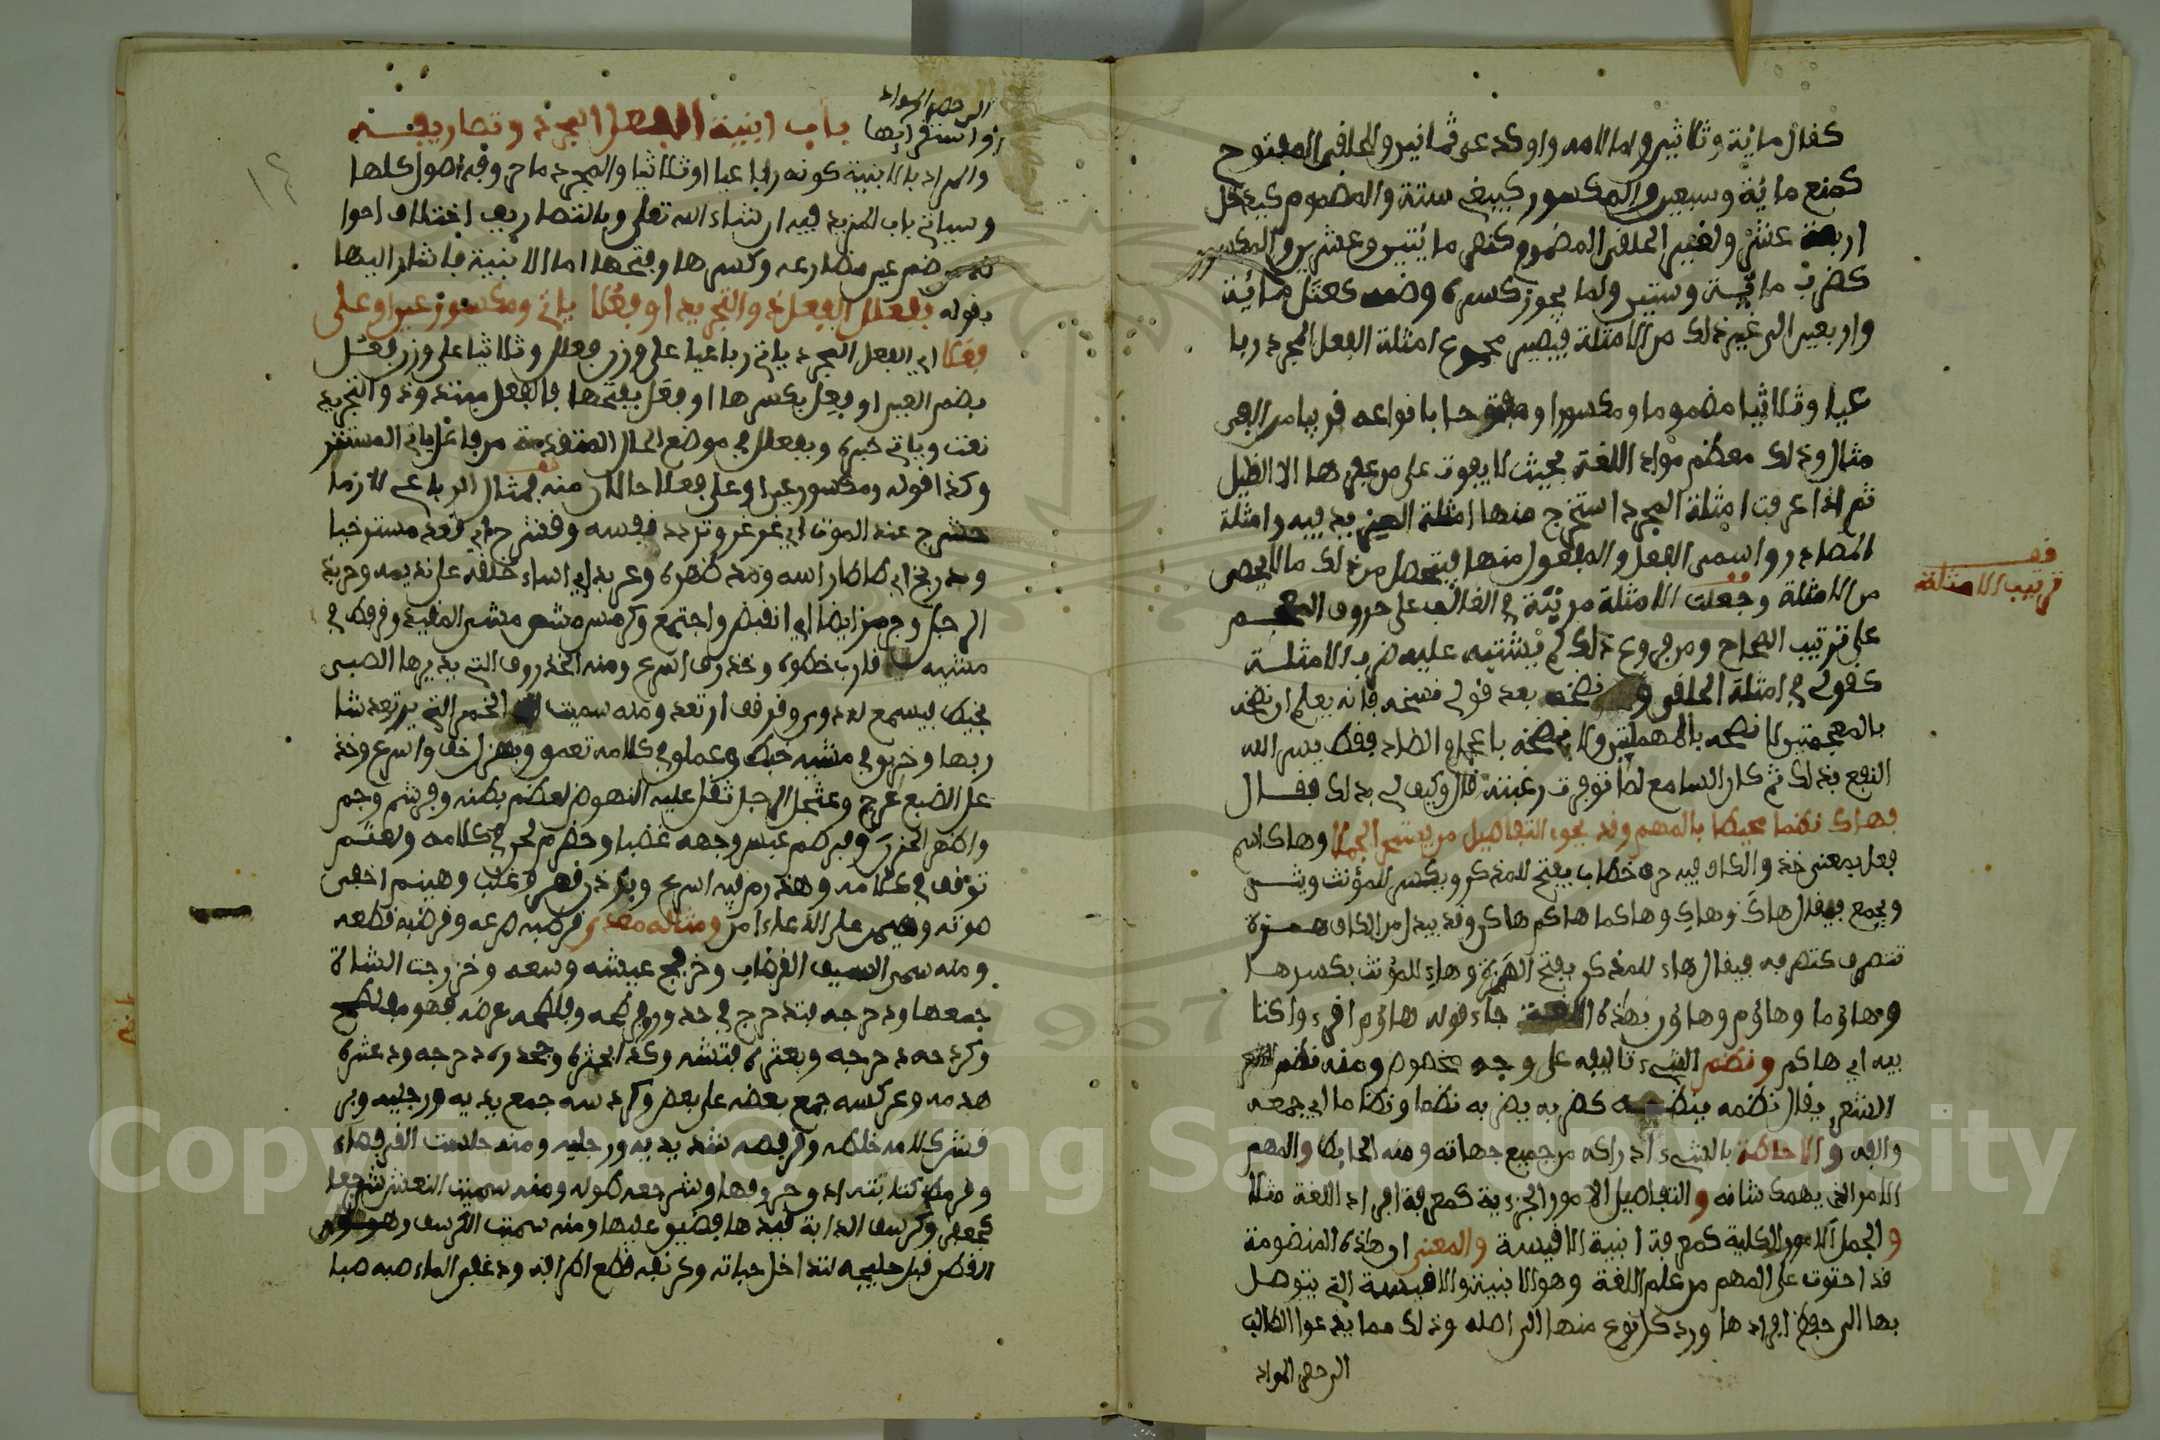 كقال مائة وثلاثين ولما لامه واو كدعى ثمانين والحلقي المفتوح
كمنع مائة وسبعين والمكسور كيبغي ستة والمضموم كيدخل
اربعة عشر ولغير الحلقي المضموم كنصر مائتين وعشرين والمكسور
كضرب مائة وستين ولما يجوز كسره وضمه كعتل مائة
واربعين الى غير ذلك من الامثلة فيصير مجموع امثلة الفعل المجرد ربا
عيا وثلاثيا مضموما ومكسورا ومفتوحا بانواعه قريبا من الفي
مثال وذلك معظم مواد اللغة بحيث لا يفوت على من عرفها الا القليل
ثم اذا عرفت امثلة المجرد استخرج منها امثلة المزيد فيه وامثلة
المصادر واسمي الفاعل والمفعول منها فيتحصل من ذلك ما لا يحصى
من الامثلة وجعلت الامثلة مرتبة في الغالب على حروف المعجم
على ترتيب الصحاح ومن فروع ذلك لم يشتبه عليه ضرب الامثلة
كقولي في امثلة الحلقي ونضخه بعد قولي فضحه فانه يعلم ان نضخه
بالمعجمتين لا نصحه بالمهملتين ولا نضحه باعجام الضاد فقط يسر الله
النفع بذلك ثم كان السامع لما توفرت رغبته قال وكيف لي بذلك فقال
فهاك نظما محيطا بالمهم وقد يحوي التفاصيل من يستحضر الجملا وهاك اسم
فعل بمعنى خذ والكاف فيه حرف خطاب يفتح للمذكر ويكسر للمؤنث ويثنى
ويجمع فيقال هاك وهاك وهاكما هاكم هاكن وقد يبدل من الكاف همزة
تتصرف كتصرفه فيقال هاء للمذكر بفتح الهمزة وهاء للمؤنث بكسرها
وهاؤما وهاؤم وهاؤن بهذه اللغة جاء قوله هاؤم اقرءوا كتا
بيه اي هاكم ونظم الشيء تاليفه على وجه مخصوص ومنه نظم
الشعر يقال نظمه ينظمه كضربه يضربه نظما ونظاما اي جمعه
والفه والاحاطة بالشيء ادراكه من جميع جهاته ومنه الحايط والمهم
الامر الذي يهمك شانه والتفاصيل الامور الجزءية كمعرفة افراد اللغة مثلا
والجمل الامور الكلية كمعرفة ابنية الاقيسة والمعنى ان هذه المنظومة
قد احتوت على المهم من علم اللغة وهو الابنية والاقيسة التي يتوصل
بها الى حفظ افرادها ورد كل نوع منها الى اصله وذلك مما يدعوا الطالب
الى حفظ المواد
قف
ترتيب الامثلة
الى حفظ المواد
واستقرايها باب ابنية الفعل المجرد وتصاريفه
والمراد بالابنية كونه رباعيا او ثلاثيا والمجرد ما حروفه اصول كلها
وسياتي باب المزيد فيه ان شاء الله تعالى وبالتصاريف اختلاف احوا
له من ضم عين مضارعه وكسرها وفتحها اما الابنية فاشار اليها
بقوله بفعلل الفعل ذو التجريد او فعلا ياتي ومكسور عين او على
فعلا اي الفعل المجرد ياتي رباعيا على وزن فعلل وثلاثيا على وزن فعل
بضم العين او فعل بكسرها او فعل بفتحها فالفعل مبتدا وذو التجريد
نعت وياتي خبره وبفعلل في موضع الحال المتقدمة من فاعل ياتي المستتر
وكذا قوله ومكسور عين او على فعلا حالان منه فمثال الرباعي لازما
حشرج عند الموت اي غرغر وتردد نفسه وفشرح اي قعد مسترخيا
ودربخ اي طاطا راسه ومد ظهره وعربد اي اساء خلقه على نديمه وحربذ
الرجل وجرمز ايضا اي انقبض واجتمع وكرمس مشى مشي المقيد وقرمط في
مشيه قارب خطوه وخذرف اسرع ومنه الخذروف التي يديرها الصبي
بخيط فيسمع له دوي وقرقف ارتعد ومنه سميت الخمر التي يرتعد شا
ربها
على الضبع عرج وعثجل الرجل ثقل عليه النهوض لعظم بطنه
وبرطم عبس وجهه غضبا وحضرم لحن في كلامه ولعثم
توقف في كلامه وهذرم فيه اسرع وهينم اخفى
صوته وهيمن على الدعاء امن ومثاله معدى قرضبه صرعه وقرضبه قطعه
ومنه سمي السيف القرضاب وخرفج عيشه وسعه وخزرجت الشاة
جمعها ودحرجه فتدحرج في حدور وفرطحه وفلطحه عرضه فهو مفلطح
وكردحه دحرجه وبعثره فتشه وكذا بحثره وجحدره دحرجه ودعثره
هدمه وعركسه جمع بعضه على بعض وكردسه جمع يديه ورجليه وبر
قش كلامه خلطه وقرفصه شد يديه ورجليه ومنه جلست القرفصاء
وقرمط كتابته ادق حروفها وشرجعه طوله ومنه سميت النعش شرجعا
كجعفر وكرسف الدابة قيدها فضيق عليها ومنه سميت الكرسف وهو
القطن قبل حليجه لتداخل حباته وكرنفه قطع اطرافه ودغفق الماء صبه صبا
Copyright © King Saud University
1957